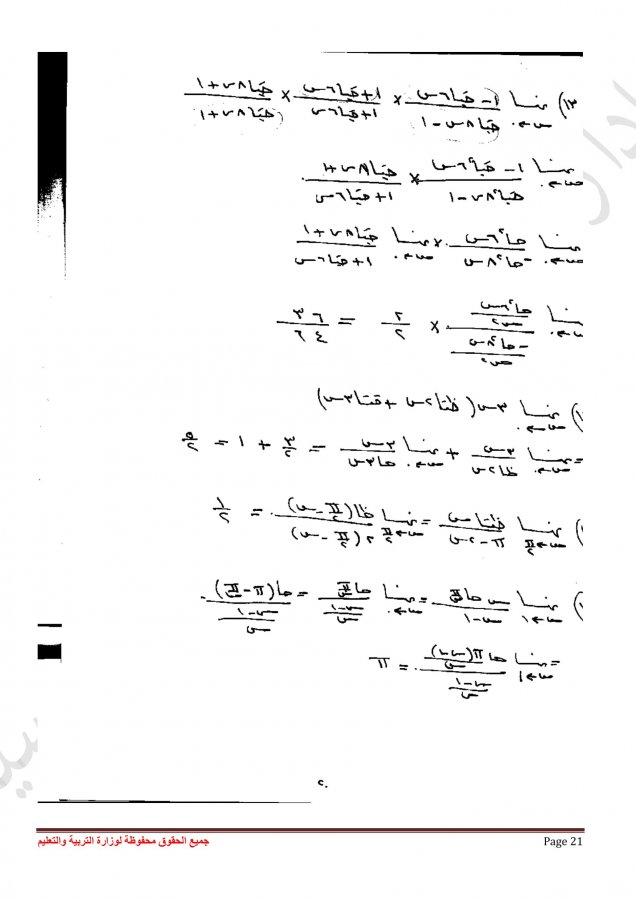 ١٣) نهــا س←٠ (١ - جتا٦س)/(جتا٨س - ١) × (١ + جتا٦س)/(١ + جتا٦س) × (جتا٨س + ١)/(جتا٨س + ١)
نهــا س←٠ (١ - جتا²٦س)/(جتا²٨س - ١) × (جتا٨س + ١)/(١ + جتا٦س)
نهــا س←٠ (جا²٦س)/(-جا²٨س) × نهــا س←٠ (جتا٨س + ١)/(١ + جتا٦س)
نهــا س←٠ (جا²٦س/س²)/(-جا²٨س/س²) × ٢/٢ = ٣٦/٦٤
) نهــا س←٠ ٣س(ظتا٢س + قتا٣س)
= نهــا س←٠ ٣س/ظا٢س + نهــا س←٠ ٣س/جا٣س = ٣/٢ + ١ = ٥/٢
) نهــا س←π/٢ ظتاس/(π - ٢س) = نهــا س←π/٢ ظا(π/٢ - س)/٢(π/٢ - س) = ١/٢
) نهــا س←١ س جا(π/س)/(س - ١) = نهــا س←٠ جا(π/س)/((س - ١)/س) = جا(π - π/س)/((س - ١)/س)
= نهــا س←١ /((س - ١)/س) = π
٢٠
جميع الحقوق محفوظة لوزارة التربية والتعليم Page 21